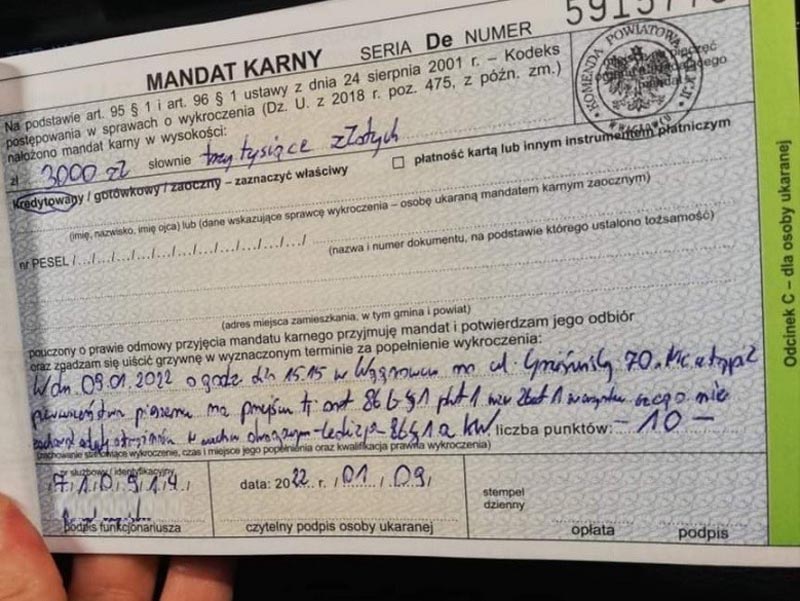 MANDAT KARNY SERIA De NUMER
Na podstawie art. 95 § 1 i art. 96 § 1 ustawy z dnia 24 sierpnia 2001 r. – Kodeks
postępowania w sprawach o wykroczenia (Dz. U. z 2018 r. poz. 475, z późn. zm.)
nałożono mandat karny w wysokości:
zł 3000 zł słownie trzy tysiące złotych
Kredytowany / gotówkowy / zaoczny – zaznaczyć właściwy
płatność kartą lub innym instrumentem płatniczym
KOMENDA POWIATOWA
(imię, nazwisko, imię ojca) lub (dane wskazujące sprawcę wykroczenia – osobę ukaraną mandatem karnym zaocznym)
nr PESEL
(nazwa i numer dokumentu, na podstawie którego ustalono tożsamość)
(adres miejsca zamieszkania, w tym gmina i powiat)
pouczony o prawie odmowy przyjęcia mandatu karnego przyjmuję mandat i potwierdzam jego odbiór
oraz zgadzam się uiścić grzywnę w wyznaczonym terminie za popełnienie wykroczenia:
W dn. 09.01.2022 o godz 15.15 w na ul. 70
pierwszeństwa pieszemu na przejściu tj art 86b §1 pkt 1
86 §1a kw liczba punktów: – 10 –
(zachowanie stanowiące wykroczenie, czas i miejsce jego popełnienia oraz kwalifikacja prawna wykroczenia)
nr służbowy / identyfikacyjny
data: 2022 r. 01 09
podpis funkcjonariusza
czytelny podpis osoby ukaranej
stempel
dzienny
opłata
podpis
Odcinek C – dla osoby ukaranej